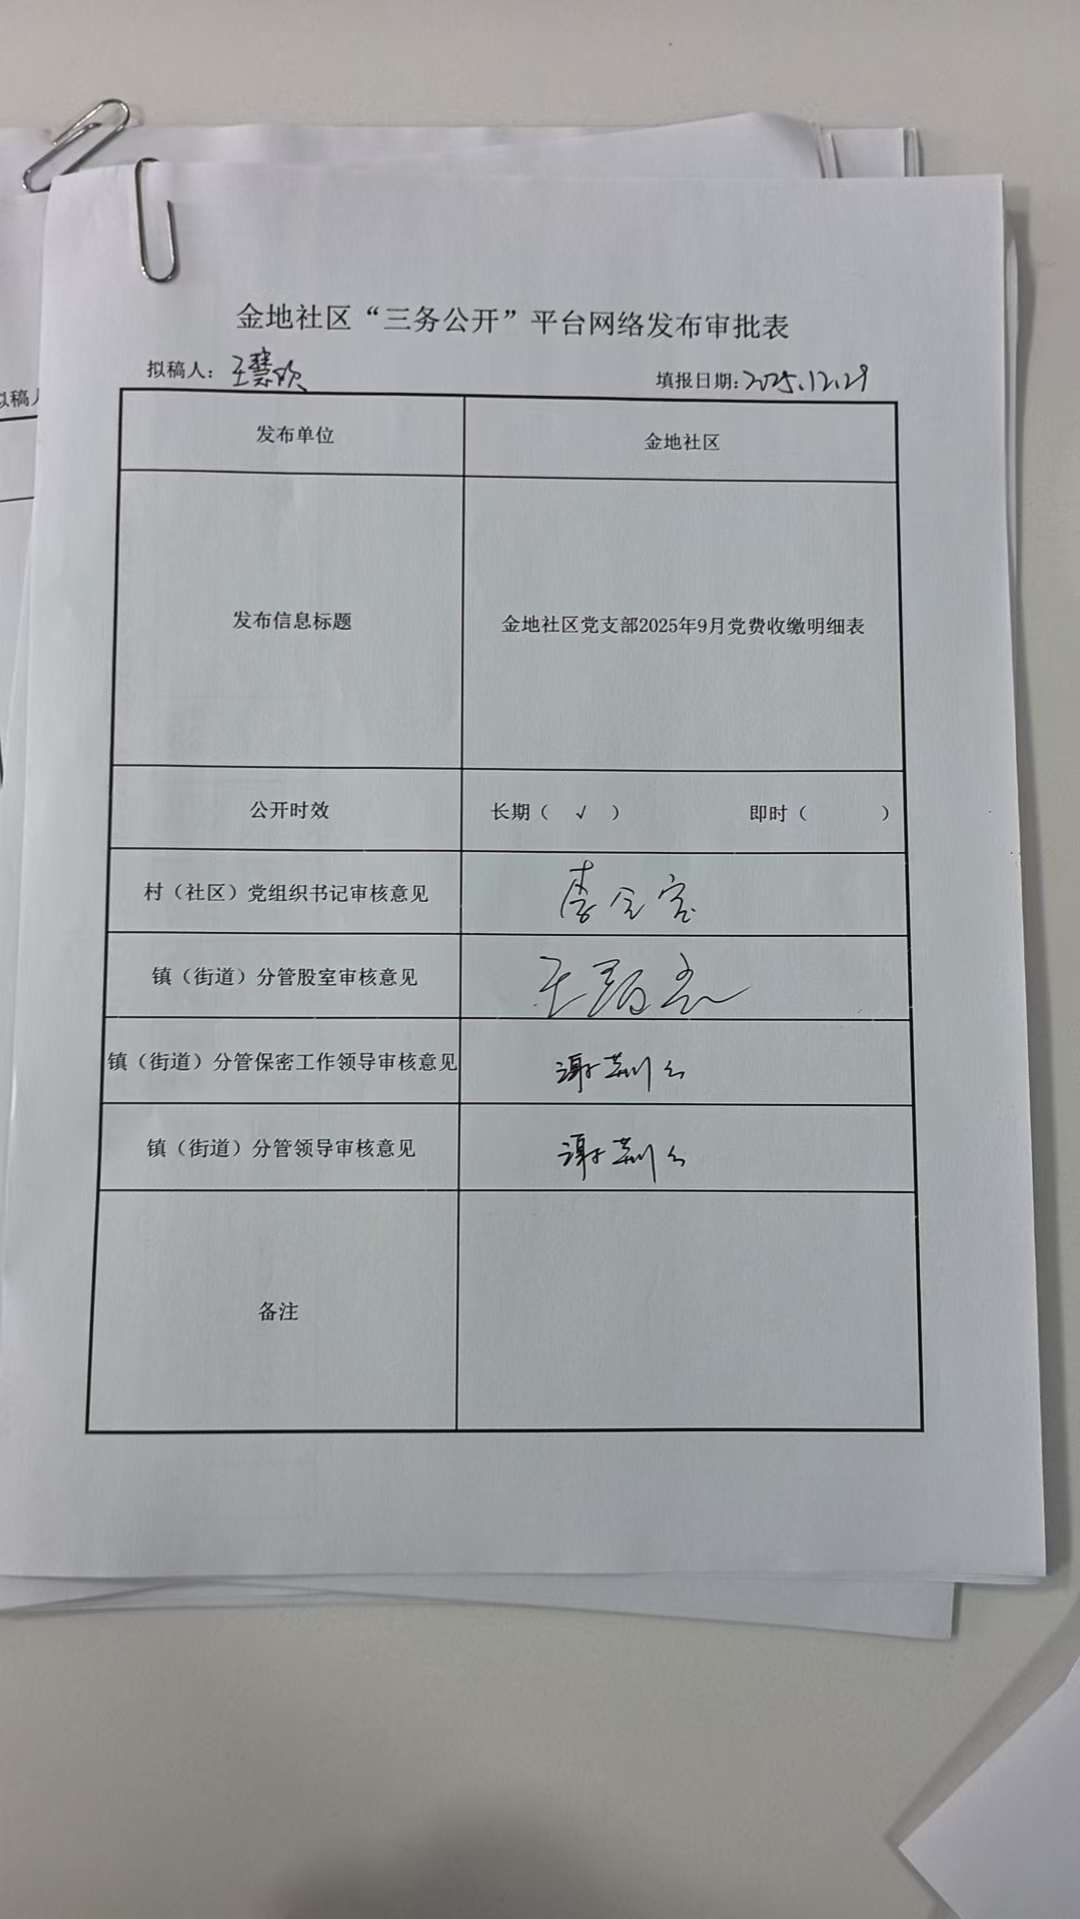 金地社区“三务公开”平台网络发布审批表
拟稿人：王慧欣
填报日期：2025.12.29
拟稿人
发布单位
金地社区
发布信息标题
金地社区党支部2025年9月党费收缴明细表
公开时效
长期（ √ ） 即时（ ）
村（社区）党组织书记审核意见
李
镇（街道）分管股室审核意见
王
镇（街道）分管保密工作领导审核意见
谢
镇（街道）分管领导审核意见
谢
备注